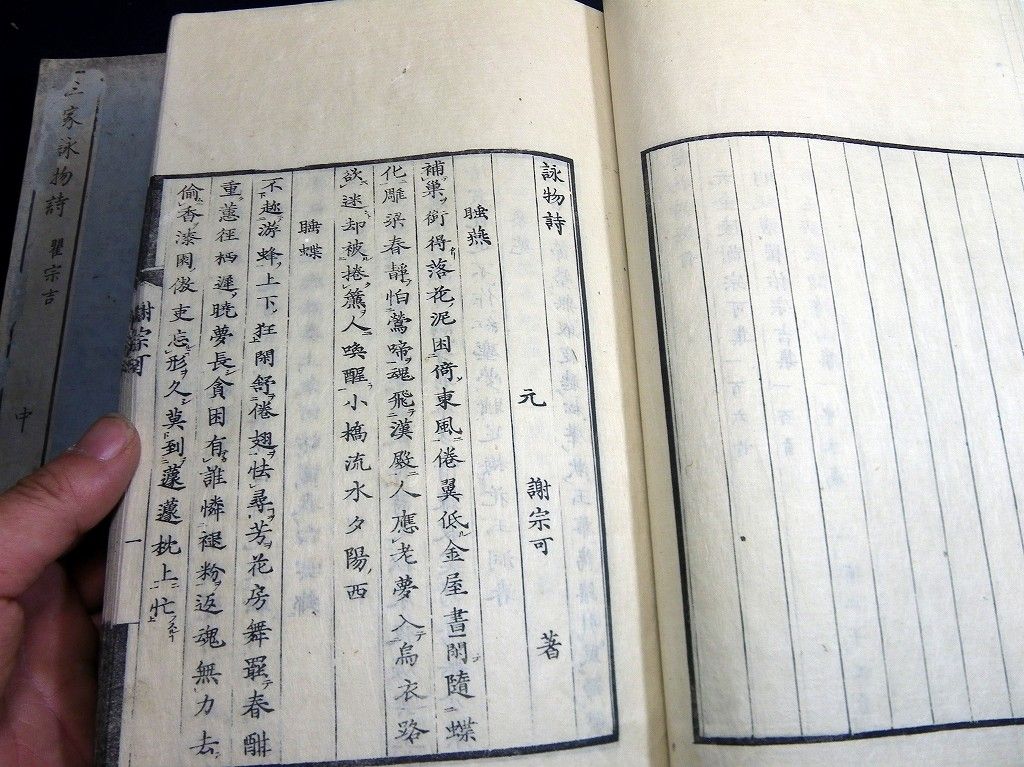 詠物詩
元 謝宗可 著
睡燕
補巢銜得落花泥困倚東風倦翼低金屋晝閒隨蝶
化雕梁春靜怕鶯啼魂飛漢殿人應老夢入烏衣路
欲迷却被捲簾人喚醒小橋流水夕陽西
睡蝶
不趂游蜂上下狂閑舒倦翅怯尋芳花房舞罷春酣
重蕙徑栖遲曉夢長貪困有誰憐褪粉返魂無力去
偷香漆園傲吏忘形久莫到蘧蘧枕上忙
謝宗可
一
三家詠物詩 瞿宗吉
中